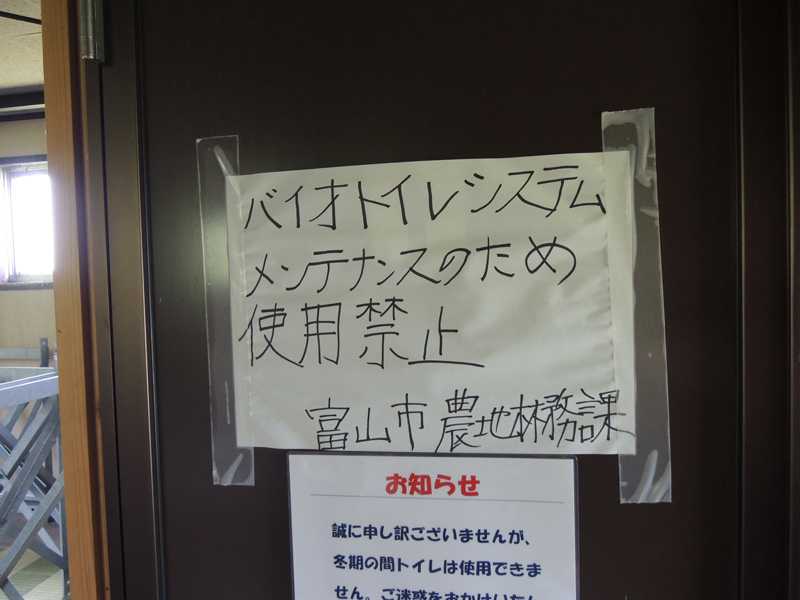 バイオトイレシステム
メンテナンスのため
使用禁止
富山市農地林務課
お知らせ
誠に申し訳ございませんが、
冬期の間トイレは使用できま
せん。ご迷惑をおかけいたし